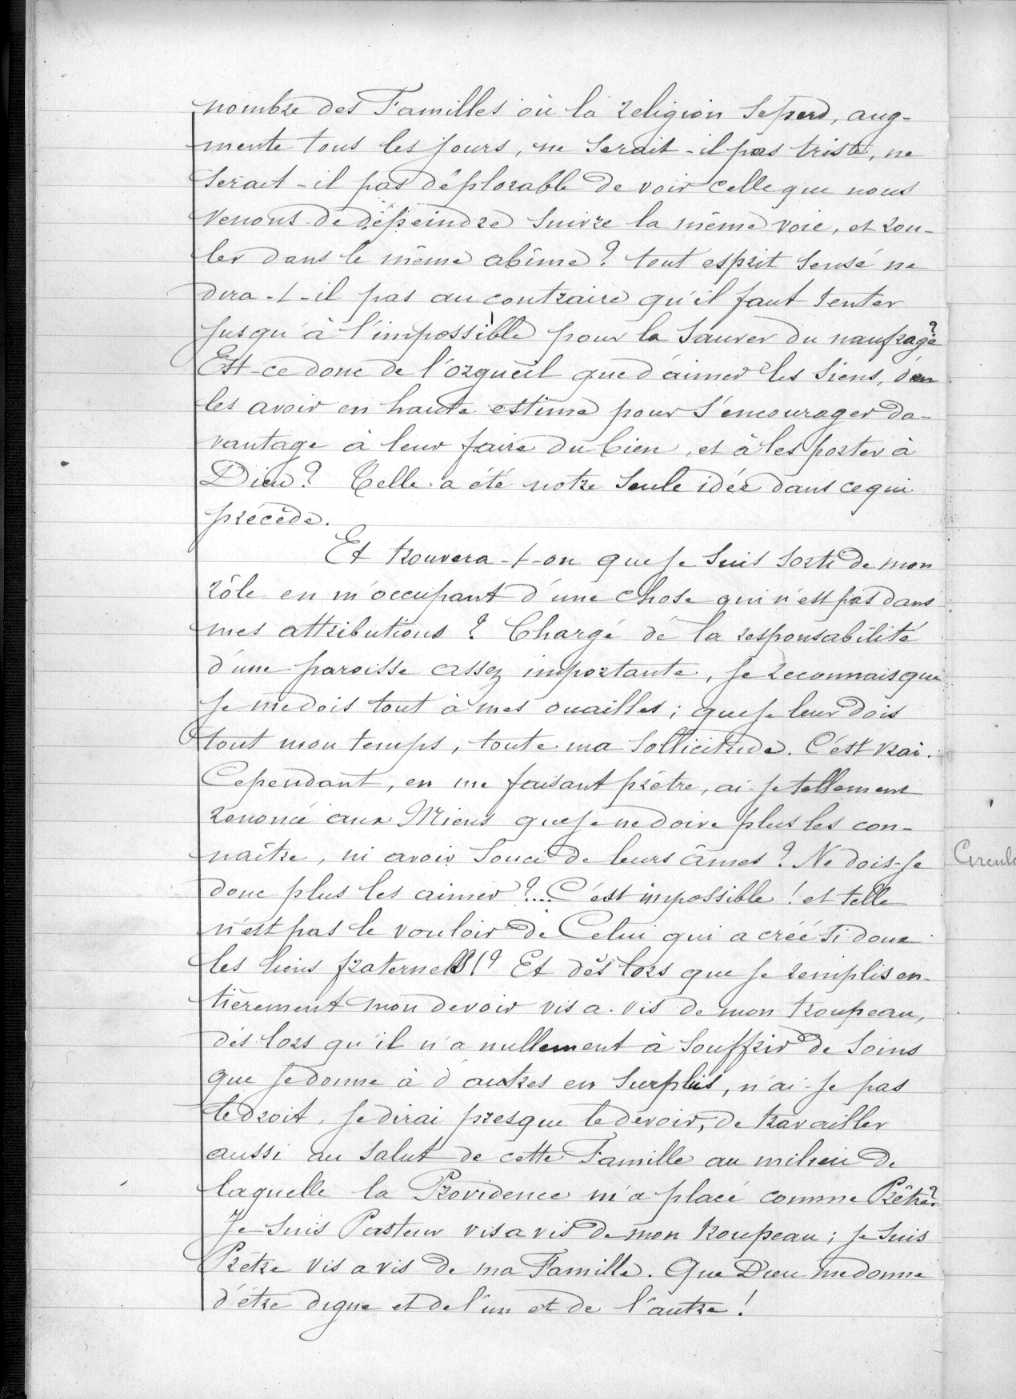 nombre des Familles où la religion se perd, aug-
mente tous les jours, ne serait-il pas triste, ne
serait-il pas déplorable de voir celle que nous
venons de dépeindre suivre la même voie, et rou-
ler dans le même abîme? tout esprit sensé ne
dira-t-il pas au contraire qu'il faut tenter
jusqu'à l'impossible pour la sauver du naufrage?
Est-ce donc de l'orgueil que d'aimer les siens, d'en
les avoir en haute estime pour s'encourager da-
vantage à leur faire du bien, et à les porter à
Dieu? Telle a été notre seule idée dans ce qui
précède.
Et trouvera-t-on que je suis sorti de mon
rôle en m'occupant d'une chose qui n'est pas dans
mes attributions? Chargé de la responsabilité
d'une paroisse assez importante, je reconnais que
je me dois tout à mes ouailles; que je leur dois
tout mon temps, toute ma sollicitude. C'est vrai.
Cependant, en me faisant prêtre, ai-je tellement
renoncé aux Miens que je ne doive plus les con-
naître, ni avoir souci de leurs âmes? Ne dois-je
donc plus les aimer?... C'est impossible! et telle
n'est pas le vouloir de Celui qui a créé si doux
les liens fraternels!? Et dès lors que je remplis en-
tièrement mon devoir vis a-vis de mon troupeau,
dès lors qu'il n'a nullement à souffrir de soins
que je donne à d'autres en surplus, n'ai-je pas
le droit, je dirai presque le devoir, de travailler
aussi au salut de cette Famille au milieu de
laquelle la Providence m'a placé comme Prêtre?
Je suis Pasteur vis a vis de mon troupeau; je suis
Prêtre vis a vis de ma Famille. Que Dieu me donne
d'être digne et de l'un et de l'autre!